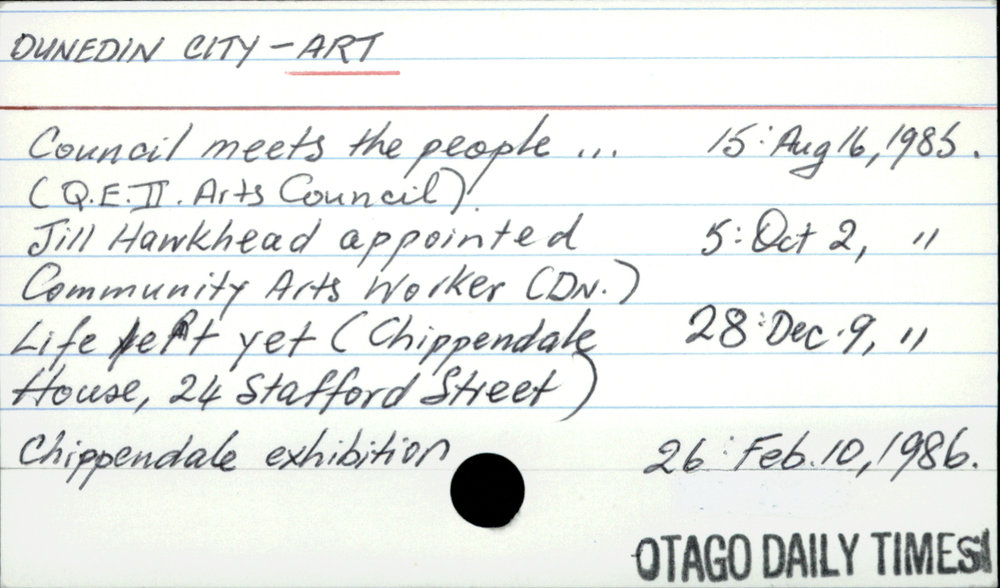 DUNEDIN CITY - ART
Council meets the people ... 15: Aug 16, 1985.
(Q.E.II. Arts Council).
Jill Hawkhead appointed 5: Oct 2, "
Community Arts Worker (DN.)
Life left yet (Chippendale 28: Dec. 9, "
House, 24 Stafford Street)
Chippendale exhibition 26: Feb. 10, 1986.
OTAGO DAILY TIMES